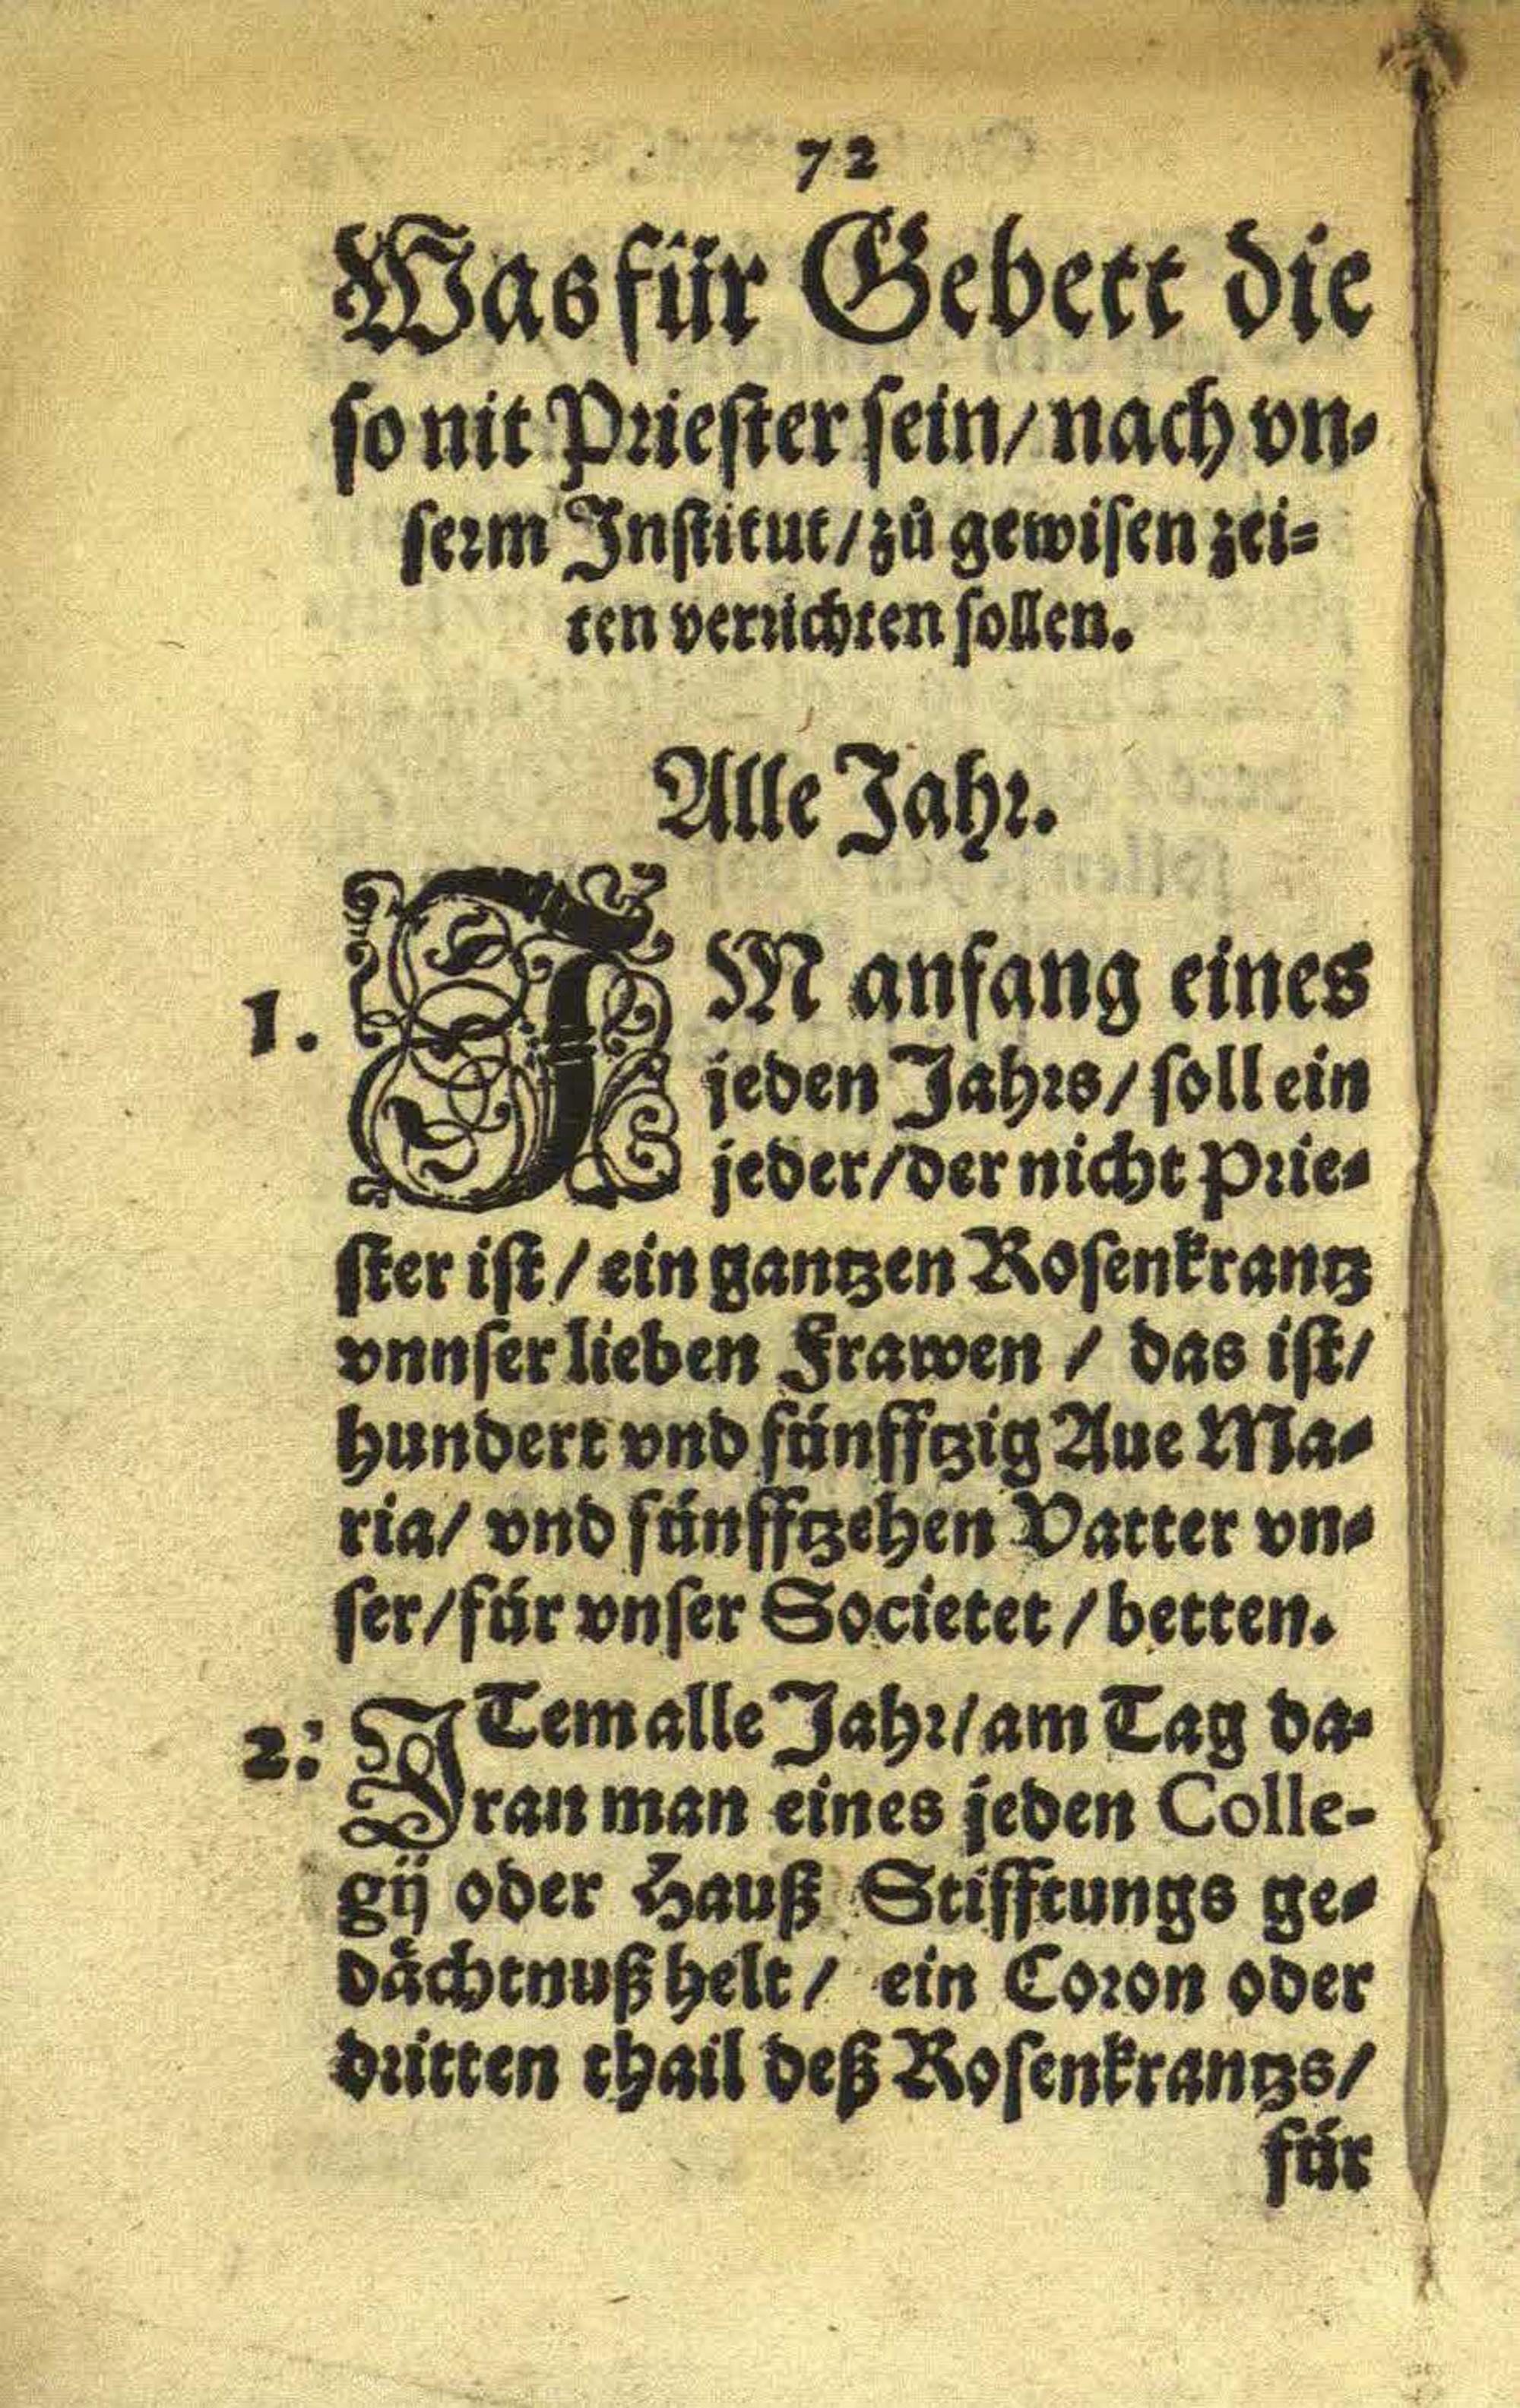 72
Was für Gebett die
so nit Priester sein/ nach vn-
serm Institut/ zů gewisen zei-
ten verrichten sollen.
Alle Jahr.
1. IM anfang eines
jeden Jahrs/ soll ein
jeder/ der nicht Prie-
ster ist/ ein gantzen Rosenkrantz
vnnser lieben Frawen / das ist/
hundert vnd fünfftzig Aue Ma-
ria/ vnd fünfftzehen Vatter vn-
ser/ für vnser Societet / betten.
2. ITem alle Jahr/ am Tag da-
ran man eines jeden Colle-
gij oder Hauß Stifftungs ge-
dächtnuß helt/ ein Coron oder
dritten thail deß Rosenkrantzs/
für